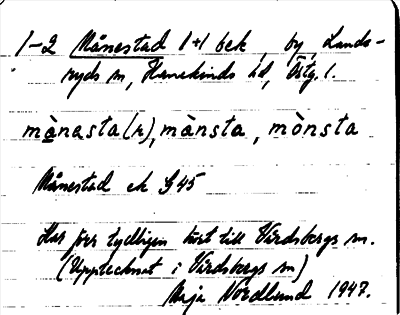 1-2 Månestad 1+1 bek, by, Lands-
ryds sn, Hanekinds hd, Östg. l.
mànasta(r), mànsta, mònsta
Månestad ek G45
Har förr tydligen hört till Vårdsbergs sn.
(Upptecknat i Vårdsbergs sn)
Maja Nordlund 1947.